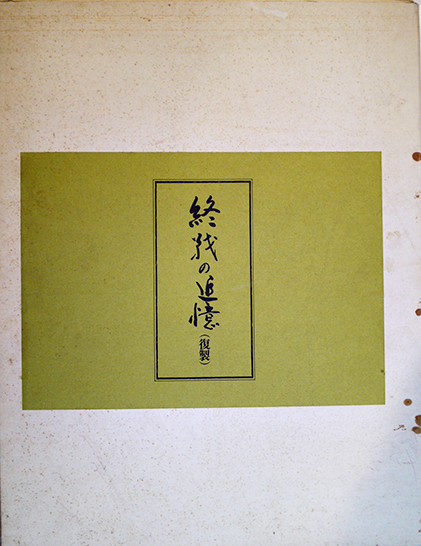 終戦の追憶（復製）